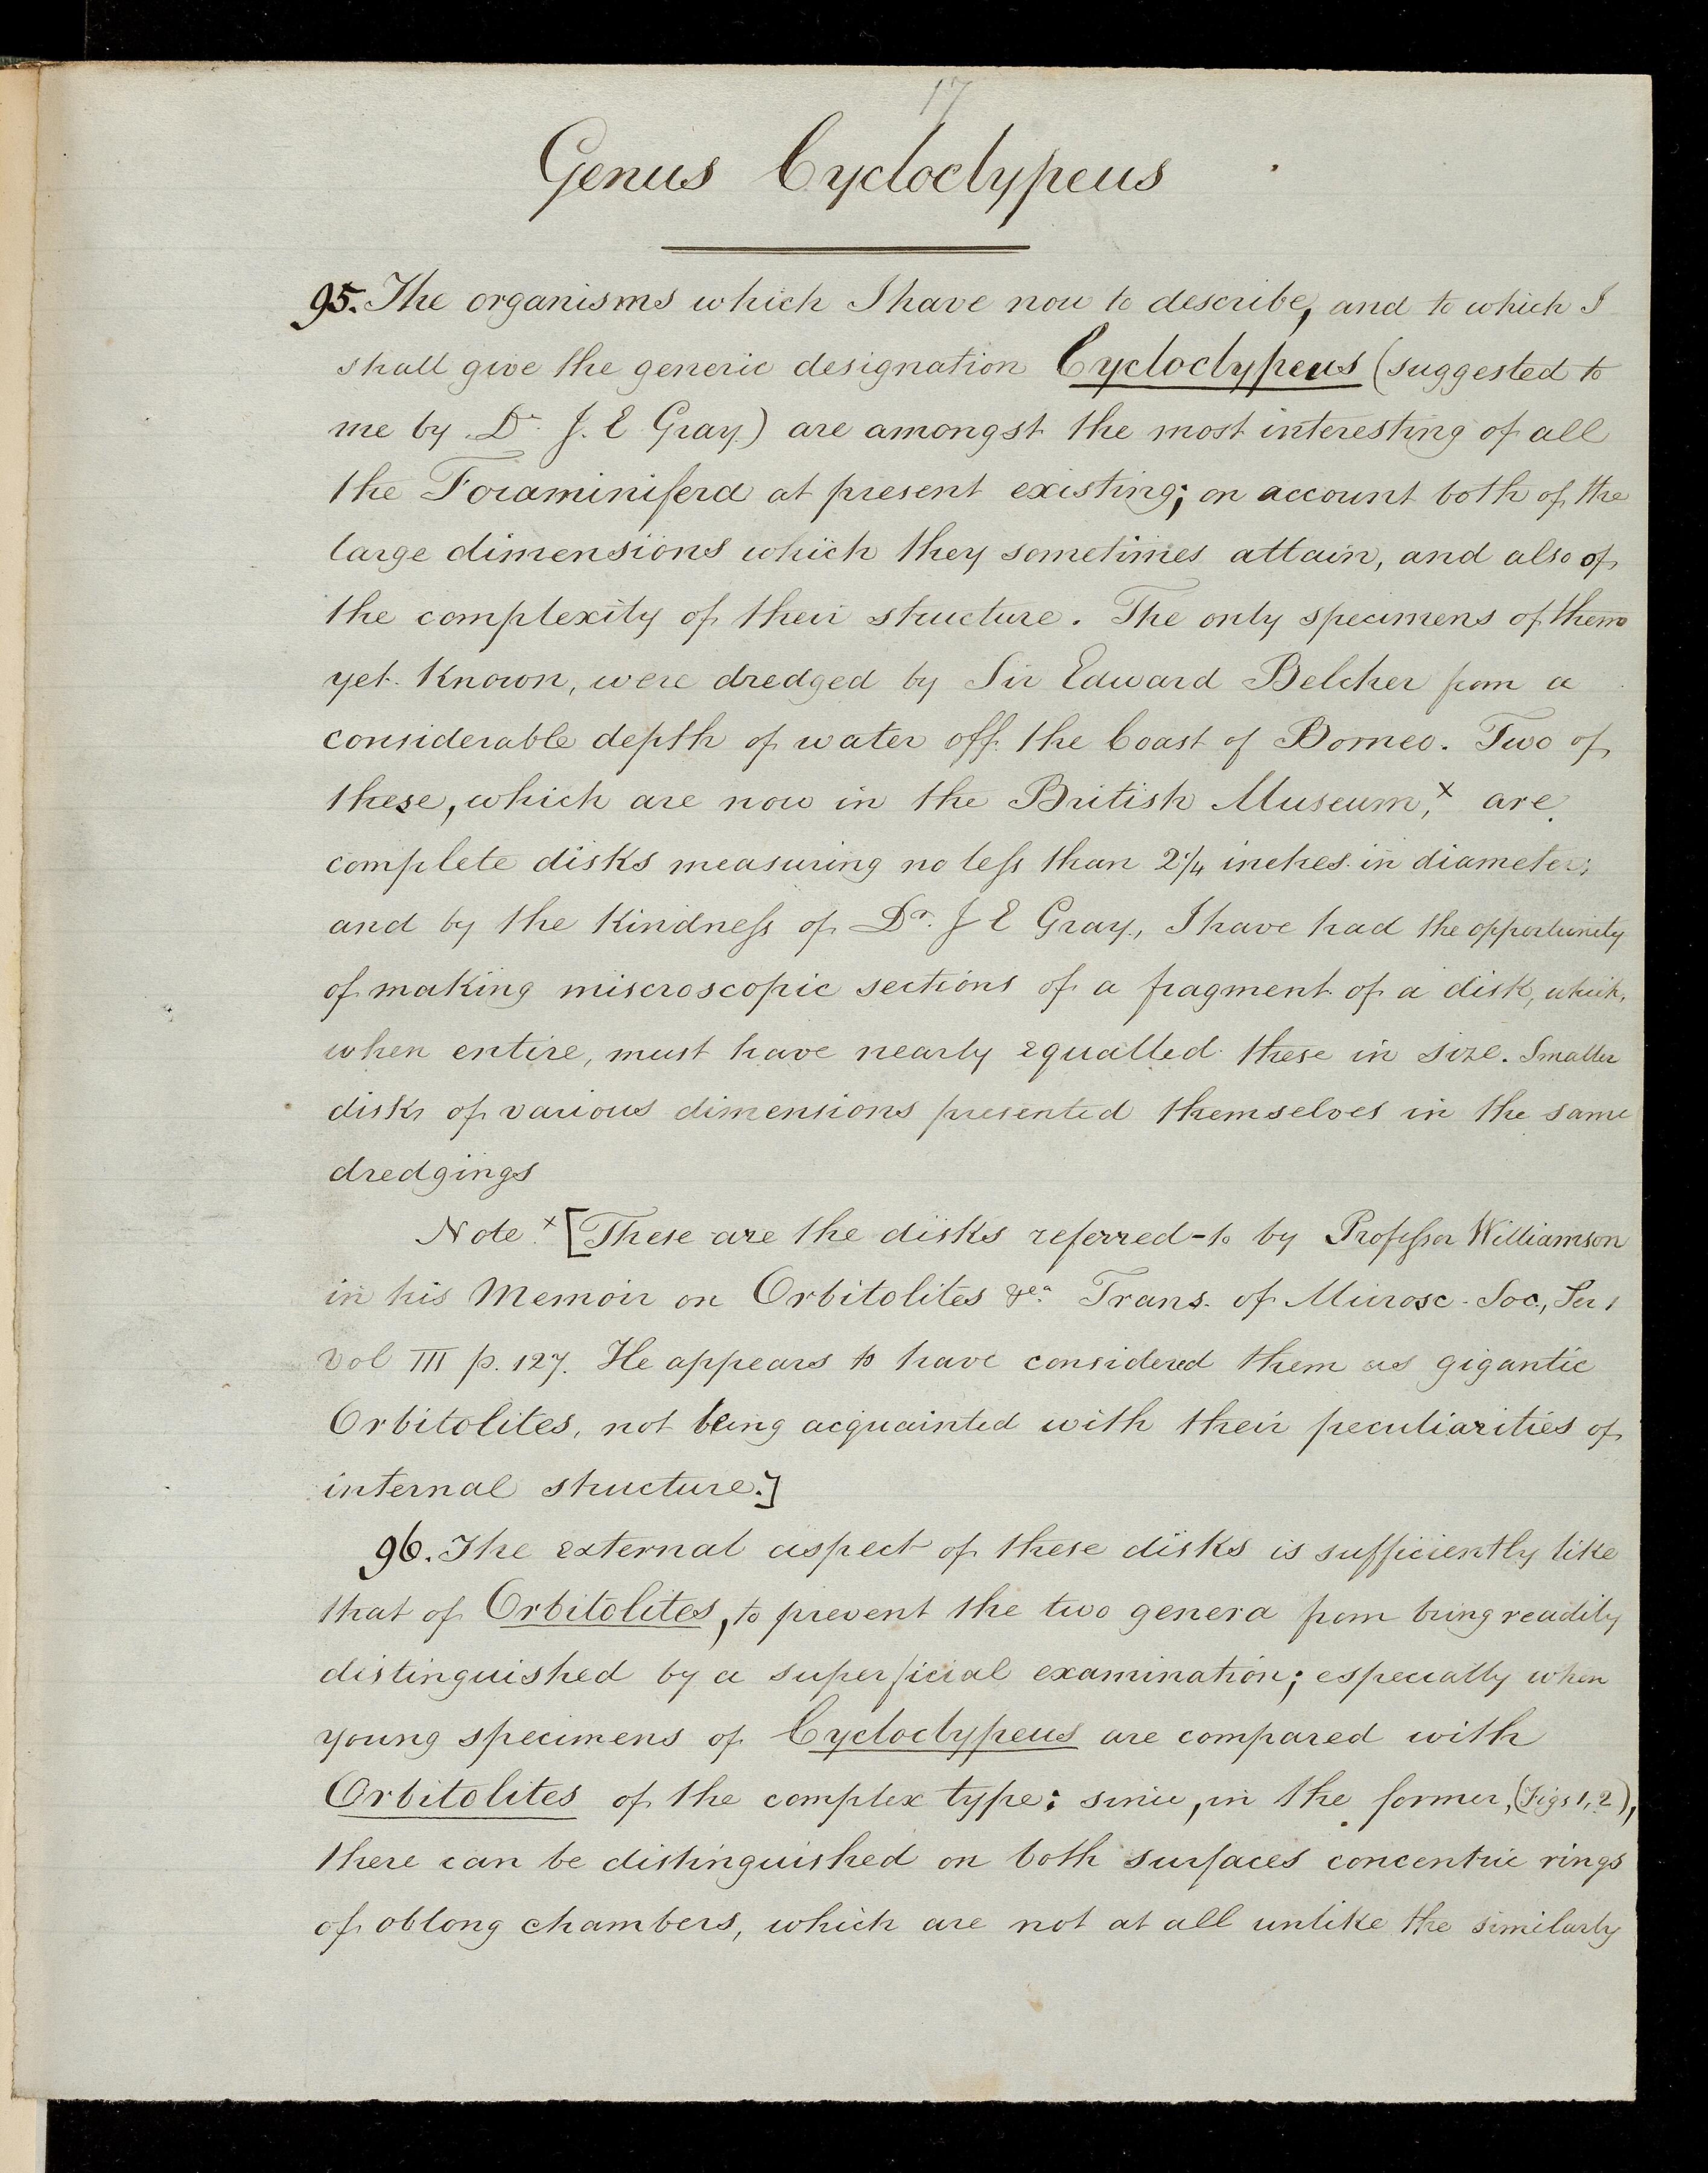 17
Genus Cycloclypeus
95. The organisms which I have now to describe, and to which I
shall give the generic designation Cycloclypeus (suggested to
me by Dr. J. E Gray) are amongst the most interesting of all
the Foraminifera at present existing; on account both of the
large dimensions which they sometimes attain, and also of
the complexity of their structure. The only specimens of them
yet known, were dredged by Sir Edward Belcher from a
considerable depth of water off the Coast of Borneo. Two of
these, which are now in the British Museum,x are
complete disks measuring no less than 2¼ inches in diameter;
and by the kindness of Dr. J E Gray, I have had the opportunity
of making miscroscopic sections of a fragment of a disk, which,
when entire, must have nearly equalled these in size. Smaller
disks of various dimensions presented themselves in the same
dredgings
Note x [These are the disks referred-to by Professor Williamson
in his Memoir on Orbitolites &ca. Trans. of Microsc. Soc., Ser 1
Vol III p. 127. He appears to have considered them as gigantic
Orbitolites, not being acquainted with their peculiarities of
internal structure.]
96. The external aspect of these disks is sufficiently like
that of Orbitolites, to prevent the two genera from being readily
distinguished by a superficial examination; especially when
young specimens of Cycloclypeus are compared with
Orbitolites of the complex type: since, in the former, (Figs 1, 2),
there can be distinguished on both surfaces concentric rings
of oblong chambers, which are not at all unlike the similarly